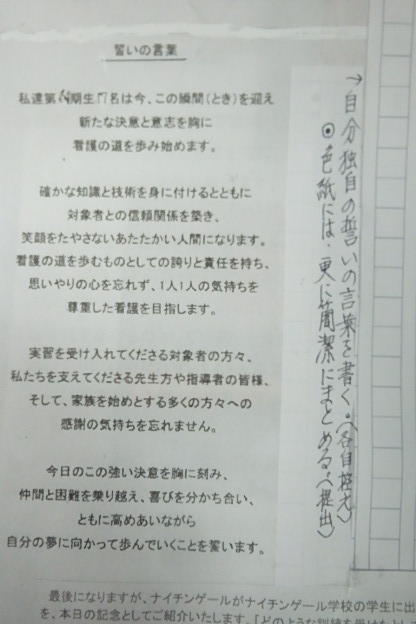 誓いの言葉
私達第 期生 名は今、この瞬間(とき)を迎え
新たな決意と意志を胸に
看護の道を歩み始めます。
確かな知識と技術を身に付けるとともに
対象者との信頼関係を築き、
笑顔をたやさないあたたかい人間になります。
看護の道を歩むものとしての誇りと責任を持ち、
思いやりの心を忘れず、1人1人の気持ちを
尊重した看護を目指します。
実習を受け入れてくださる対象者の方々、
私たちを支えてくださる先生方や指導者の皆様、
そして、家族を始めとする多くの方々への
感謝の気持ちを忘れません。
今日のこの強い決意を胸に刻み、
仲間と困難を乗り越え、喜びを分かち合い、
ともに高めあいながら
自分の夢に向かって歩んでいくことを誓います。
→自分独自の誓いの言葉を書く。(各自
◉色紙には、更に簡潔にまとめる。(提出)
最後になりますが、ナイチンゲールがナイチンゲール学校の学生に出
を、本日の記念としてご紹介いたします。「どのような訓練を受けたとし